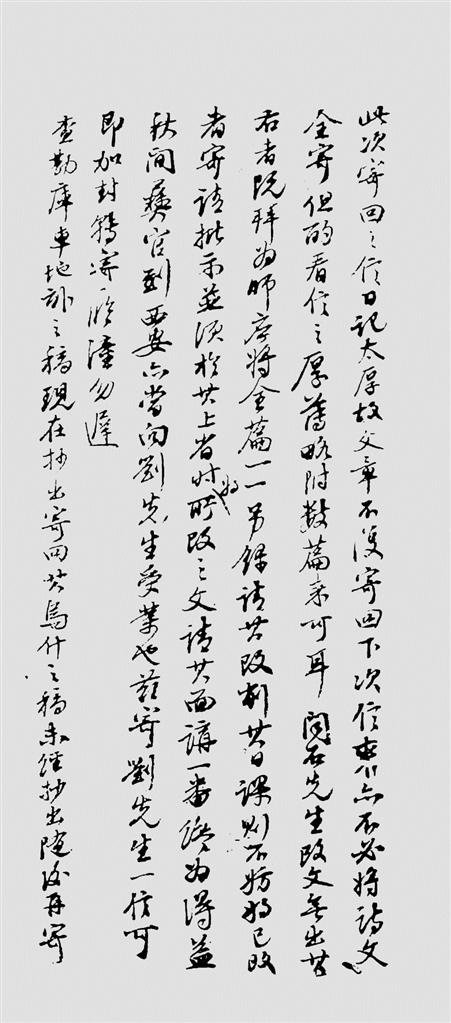 此次寄回之信日記太厚故文章不復寄回下次信來亦不必將詩文
全寄但酌看信之厚薄略附數篇來可耳 閻石先生改文無出其
右者既拜為師應將全篇一一另錄請其改削其日課則不妨將已改
者寄請批示並須於其上省時將所改之文請其面講一番終為得益
秋間彝官到西安亦當向劉先生受業也茲寄劉先生一信可
即加封轉寄臨潼勿遲
查勘庫車地畝之稿現在抄出寄回其烏什之稿未經抄出隨後再寄